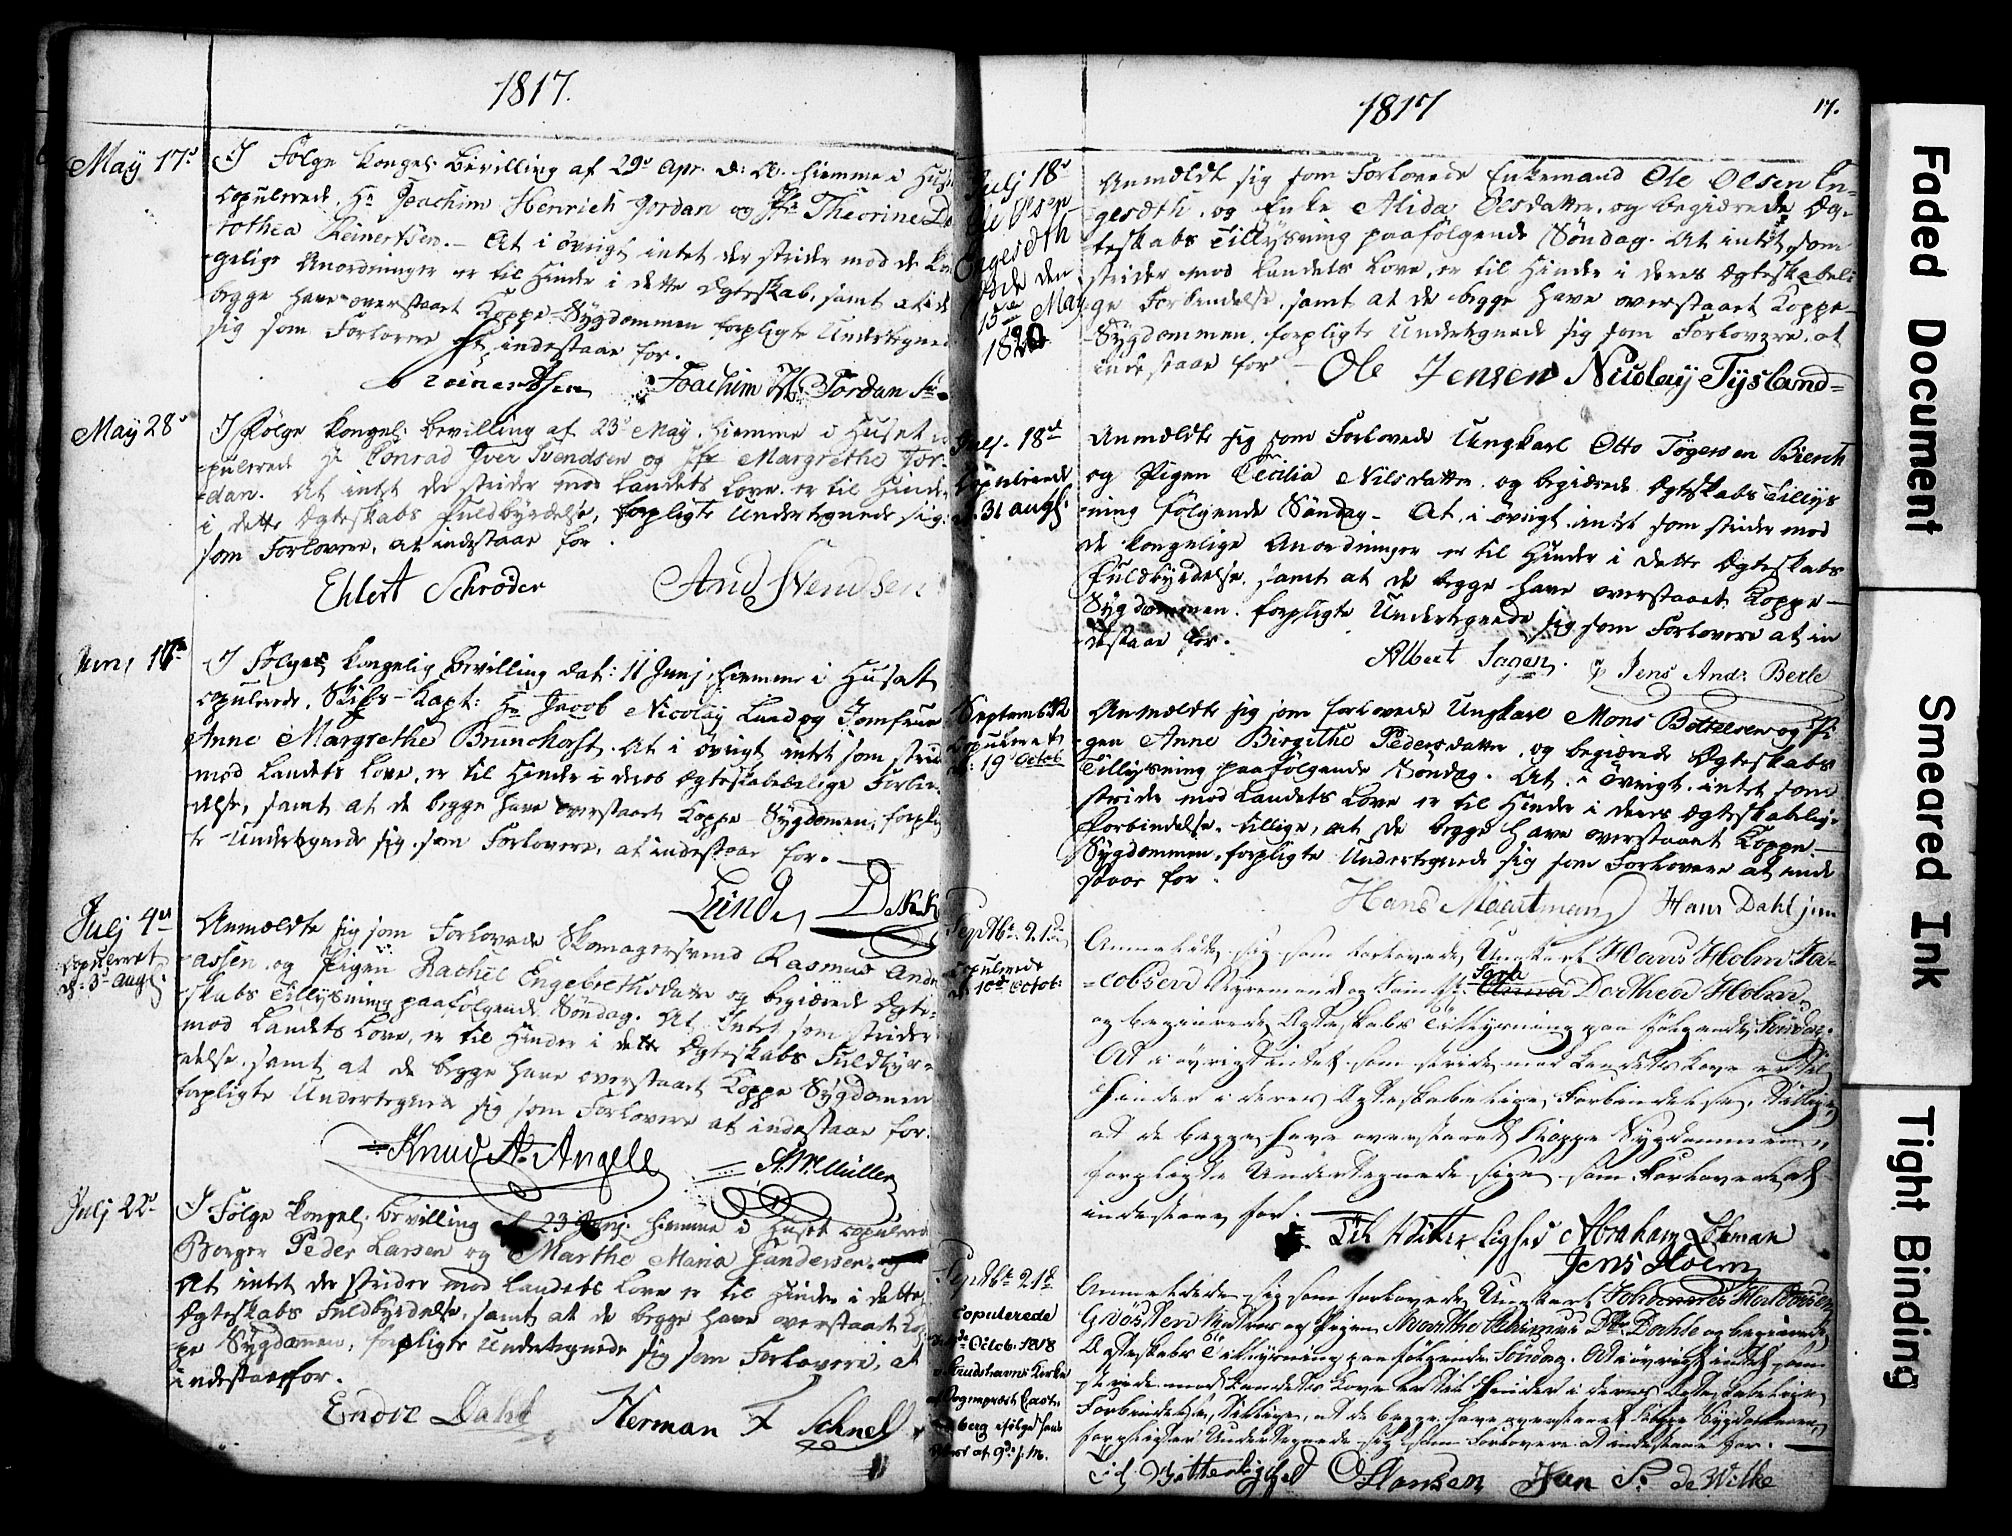 1817.
May 17d
I Følge kongel: Bevilling af 29d Apr. d: A. hiemme i Huset
copulerede, Hr Joachim Henrich Jordan og Jfr Theorine Do
rothea Reinertsen. - At i øvrigt intet der strider mod de kon
gelige Anordninger er til Hinder i dette Ægteskab, samt at de
begge have overstaaet Koppe-Sygdommen forpligte Undertegnede
sig som Forlovere at indestaae for.
Reinertsen Joachim H: Jordan
May 28d
I Følge kongel: bevilling af 23d May, hiemme i Huset co
pulerede Hr Conrad Iver Svendsen og Jfr Margrethe Jor-
dan. At intet der strider mod Landets Love er til Hinder
i dette Ægteskabs Fuldbyrdelse, forpligte Undertegnede sig
som Forlovere, at indestaae for.
Ehlert Schrøder And Svendsen
Juni
I Følge kongelig bevilling dat: 11 Junj, hiemme i Huset
copulerede, Skibs-Kapt: Hr Jacob Nicolay Lund og Jomfrue
Anne Margrethe Brunchorst. At i øvrigt intet som strider
mod Landets Love, er til Hinder i deres Ægteskabelige Forbin-
delse, samt at de begge have overstaaet Koppe-Sygdomen, forplig
te Undertegnede sig som Forlovere, at indestaae for.
Lund
Julj 4de
copuleret
d: 3d Augs.
Anmeldte sig som Forlovede Skomagersvend Rasmus Andre
assen og Pigen Rachel Engebrethsdatter og begiærede Ægte-
skabs Tillysning paafølgende Søndag. At intet som strider
mod Landets Love, er til Hinder i dette Ægteskabs Fuldbyr-
delse, samt at de begge have overstaaet Koppe Sygdomen
forpligte Undertegnede sig som Forlovere at indestaae for.
Knud A. Angell A. W. Müller
Julj 22d
I Følge kongel. bevilling af 23 Junj. hiemme i Huset copulered
Borger Peder Larsen og Marthe Maria Gundersen.
At intet der strider mod Landets Love er til Hinder i dette
Ægteskabs Fuldbyrdelse, samt at de begge have overstaaet Kop
pe Sygdomen, forpligte Undertegnede sig som Forlovere, at
indestaae for.
Endre Dahl Herman F Schnell
1817
17.
Julj 18d
Ole Olsen
Engesæth
døde den
15de May
1820
Anmeldte sig som Forlovede Enkemand Ole Olsen En-
gesæth, og Enke Alida Olsdatter, og begiærede Æg-
teskabs Tillysning paafølgende Søndag. At intet som
strider mod Landets Love, er til Hinder i deres Ægteskabeli
ge Forbindelse, samt at de begge have overstaaet Koppe-
Sygdommen, forpligte Undertegnede sig som Forlovere, at
indestaae for Ole Jensen Nicolay Tysland
Julj. 18d
Copulerede
d. 31 augs.
Anmeldte sig som Forlovede Ungkarl Otto Tøgersen Bierch
og Pigen Cecilia Nilsdatter, og begiærede Ægteskabs Tillys
ning følgende Søndag - At i øvrigt intet som strider mod
de kongelige Anordninger er til Hinder i dette Ægteskabs
Fuldbyrdelse, samt at de begge have overstaaet Koppe-
Sygdommen, forpligte Undertegnede sig som Forlovere at in
destaae for.
Albert Sagen. Jens And: Berle
Septemb 12
Copuleret
d: 19 Octob
Anmeldte sig som forlovede Ungkarl Mons Bottelsen og Pi
gen Anne Birgithe Pedersdatter, og begiærede Ægteskabs
Tillysning paafølgende Søndag. At i øvrigt intet som
strider mod Landets Love er til Hinder i deres Ægteskabelige
Forbindelse, tillige, at de begge have overstaaet Koppe-
Sygdommen, forpligte Undertegnede sig som Forlovere at inde
staae for.
Hans Maartman Hans Dahl jun
Septbr. 21d
Copulerede
d: 10d Octob:
Anmeldede sig som forlovede, Ungkarl Hans Holm Ja-
cobsen og Jomf: Sara Dorthea Holm,
og begierede Ægteskabs Tillysning paa følgende Søndag.
At i øvrigt intet som strider mod Landets Love er til
Hinder i deres Ægteskabelige Forbindelse, Tillige
at de begge have overstaaet Koppe Sygdommen,
forpligte Undertegnede sig som Forlovere at
indestaae for.
Abraham Lohman
Jens Holm
Septbr 21d
Copulerede
Octob: 1818
Anmeldede sig som forlovede Ungkarl Johannes
Matros og Pigen Dtr Dahle og begierede
Ægteskabs Tillysning paa følgende Søndag. At i øvrigt intet som
strider mod Landets Love er til Hinder i deres Ægteskabelige
Forbindelse, Tillige, at de begge have overstaaet Koppe Sygdommen,
forpligter Undertegnede sig som Forlovere at indestaae for.
Hansen Jan S: de Wilke
Faded Document
Smeared Ink
Tight Binding